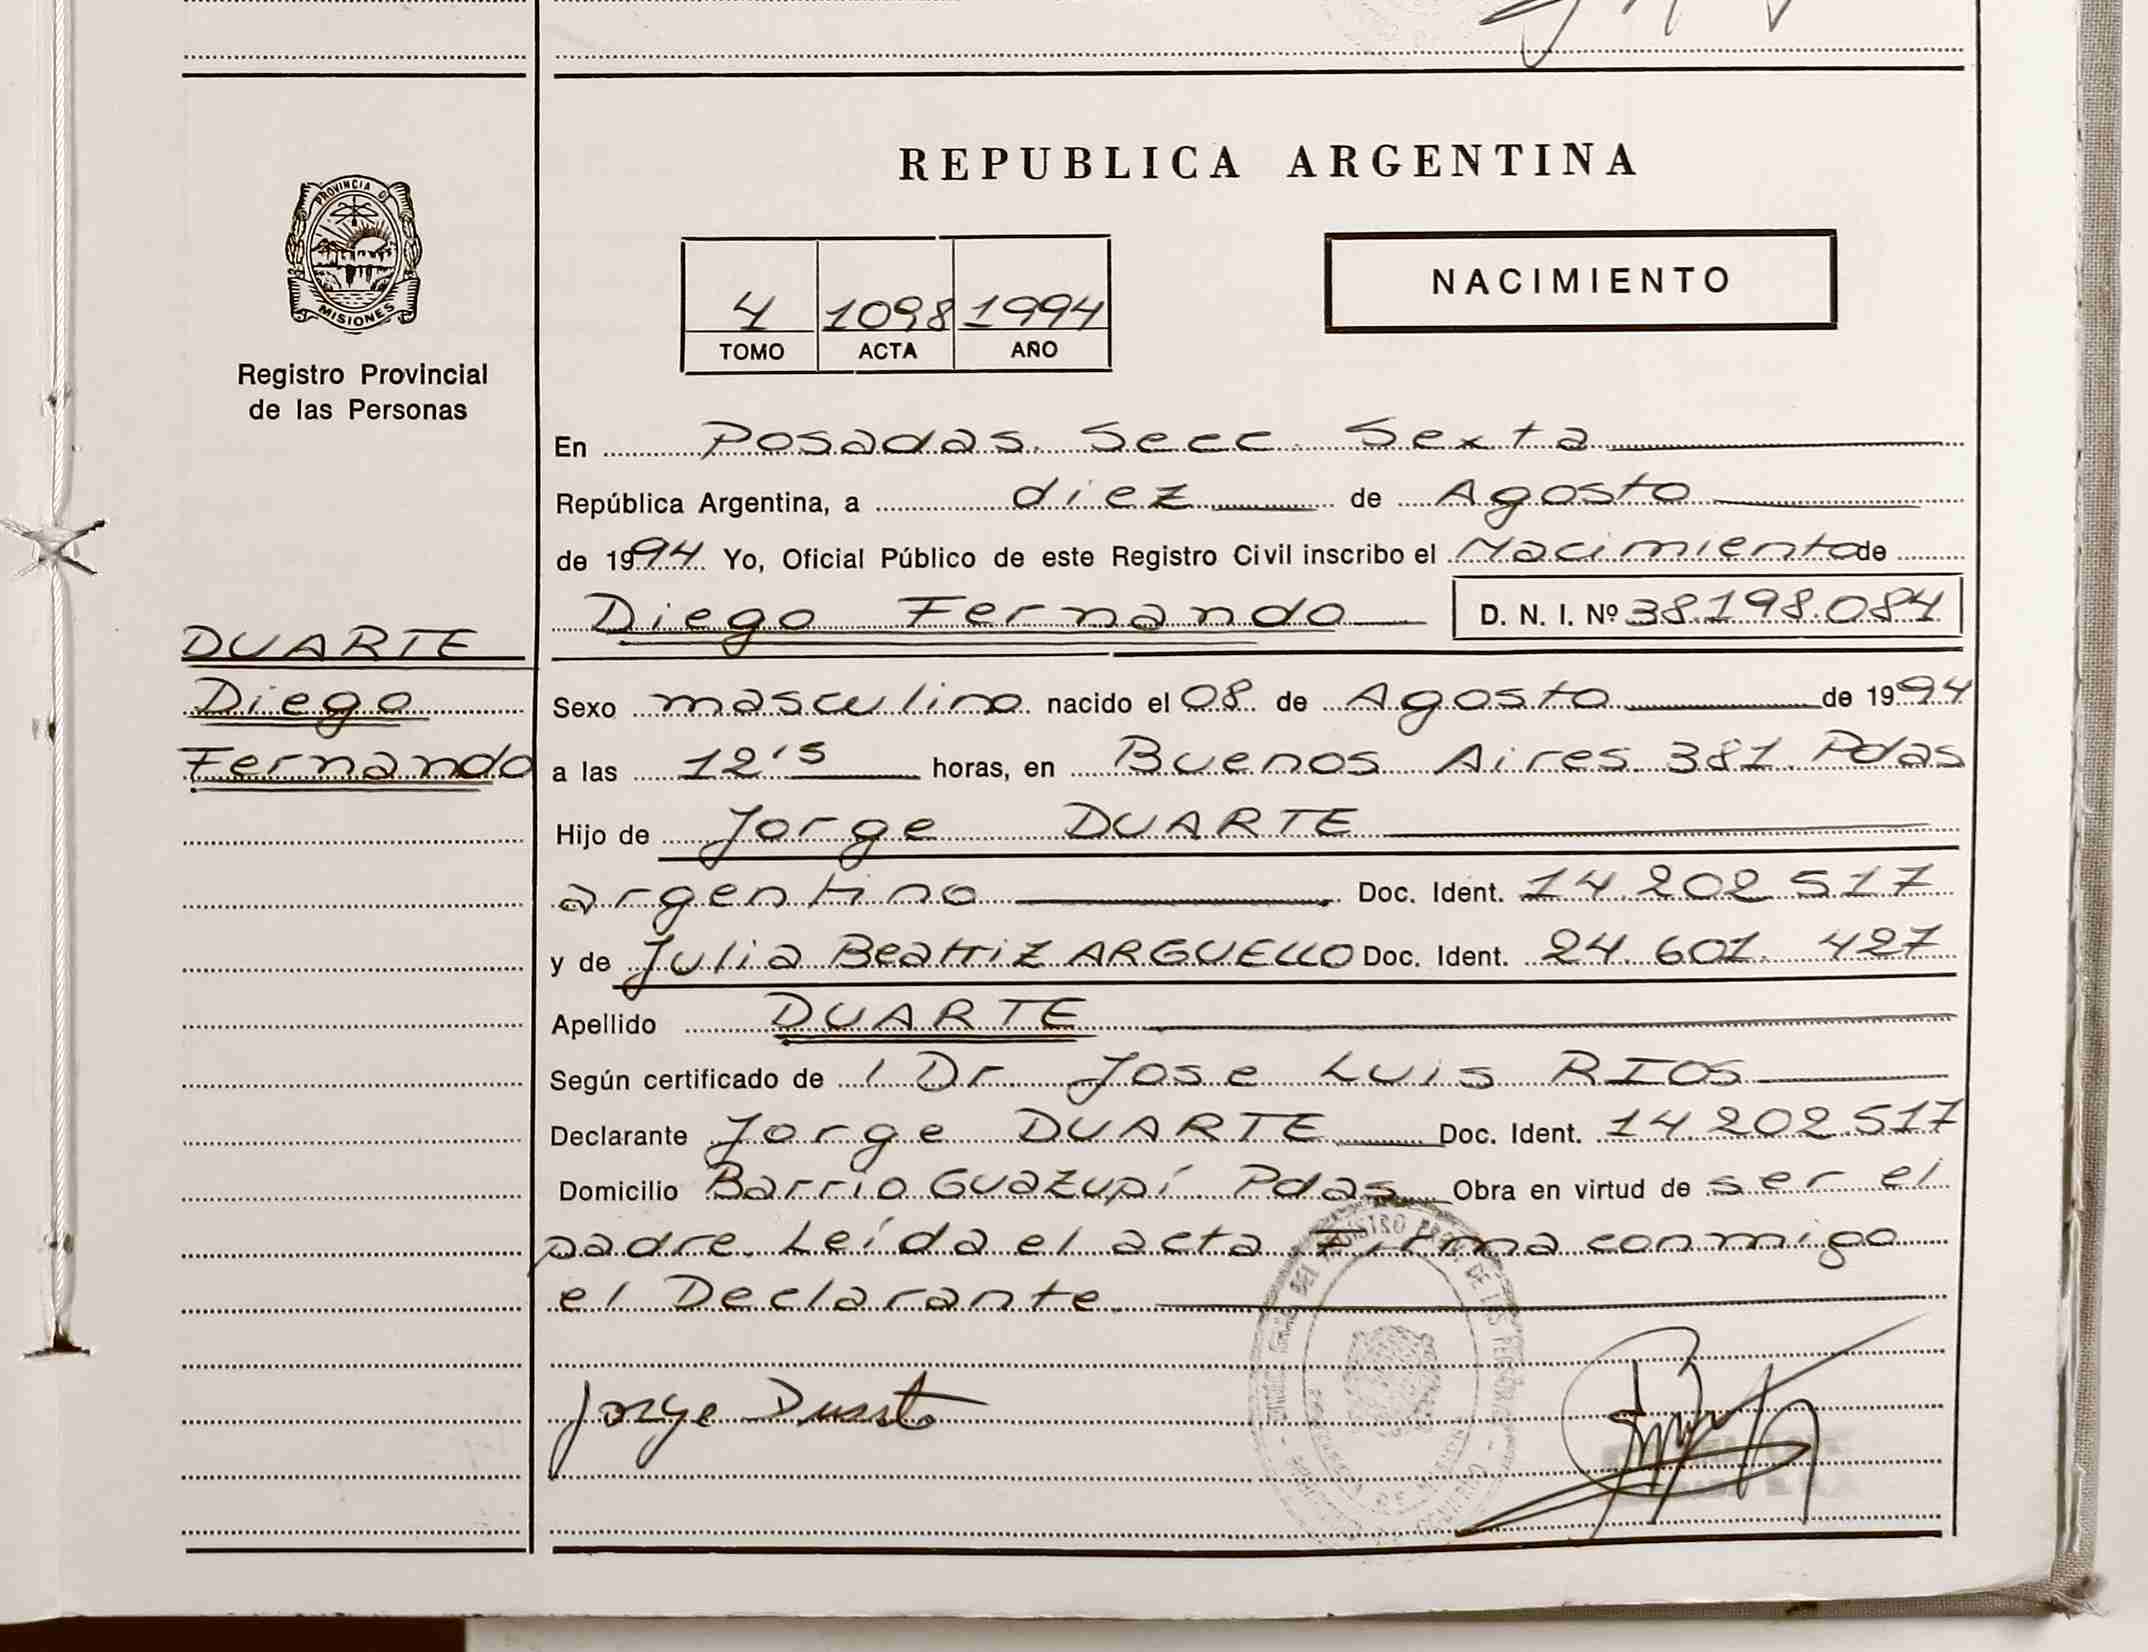 PROVINCIA DE
MISIONES
Registro Provincial
de las Personas
REPUBLICA ARGENTINA
4 1098 1994
TOMO ACTA AÑO
NACIMIENTO
En Posadas. Secc. Sexta
República Argentina, a diez de Agosto
de 1994 Yo, Oficial Público de este Registro Civil inscribo el Nacimiento de
Diego Fernando D. N. I. Nº 38.198.084
DUARTE
Diego
Fernando
Sexo masculino nacido el 08 de Agosto de 1994
a las 12'5 horas, en Buenos Aires 381. Pdas
Hijo de Jorge DUARTE
argentino Doc. Ident. 14.202.517
y de Julia Beatriz ARGUELLO Doc. Ident. 24.601.427
Apellido DUARTE
Según certificado de / Dr Jose Luis RIOS
Declarante Jorge DUARTE Doc. Ident. 14.202.517
Domicilio Barrio Guazupí Pdas Obra en virtud de ser el
padre. Leída el acta Firma conmigo
el Declarante.
Jorge Duarte